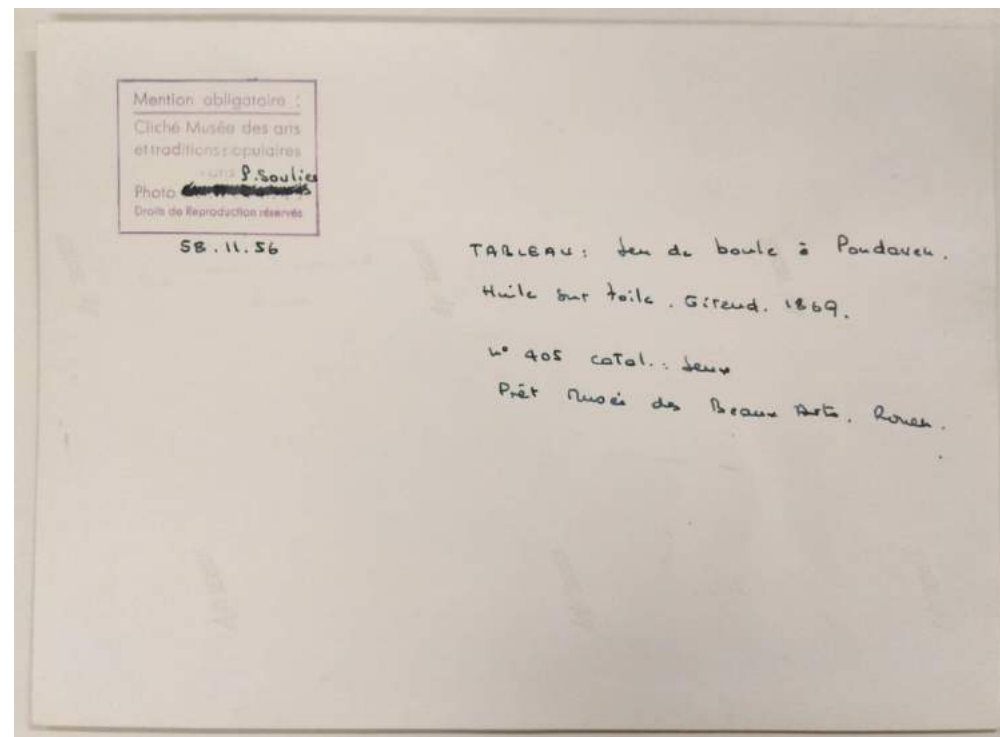 Mention obligatoire :
Cliché Musée des arts
et traditions populaires
P. Soulier
Photo
Droits de Reproduction réservés
58.11.56
TABLEAU : Jeu de boule à Pondaven.
Huile sur toile. Giraud. 1869.
N° 405 catal. : Jeux
Prêt Musée des Beaux Arts. Rouen.